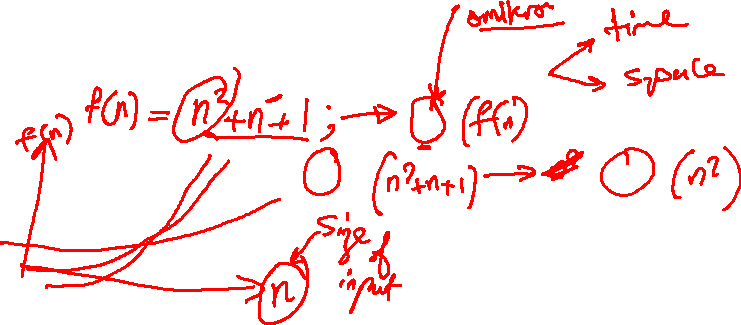 omikron
time
space
f(n) = n² + n + 1 ; → O (f(n)
f(n)
O (n² + n + 1) → O (n²)
size
of
input
n